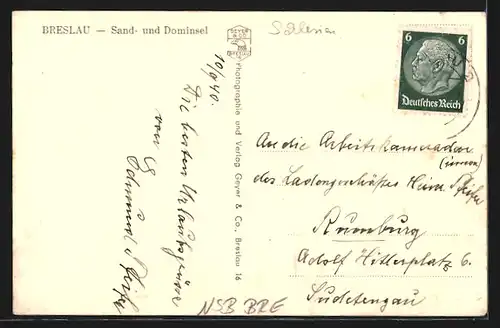 BRESLAU — Sand- und Dominsel
GEYER
& CO
BRESLAU
Schlesien
10/9 40.
Die besten Urlaubsgrüsse
von
Photographie und Verlag Geyer & Co., Breslau 16
6 6
Deutsches Reich
An die Arbeitskameraden
(innen)
des Ladengeschäftes Heinr. Pfeifer
Rumburg
Adolf Hitlerplatz 6.
Sudetengau
NSB BRE